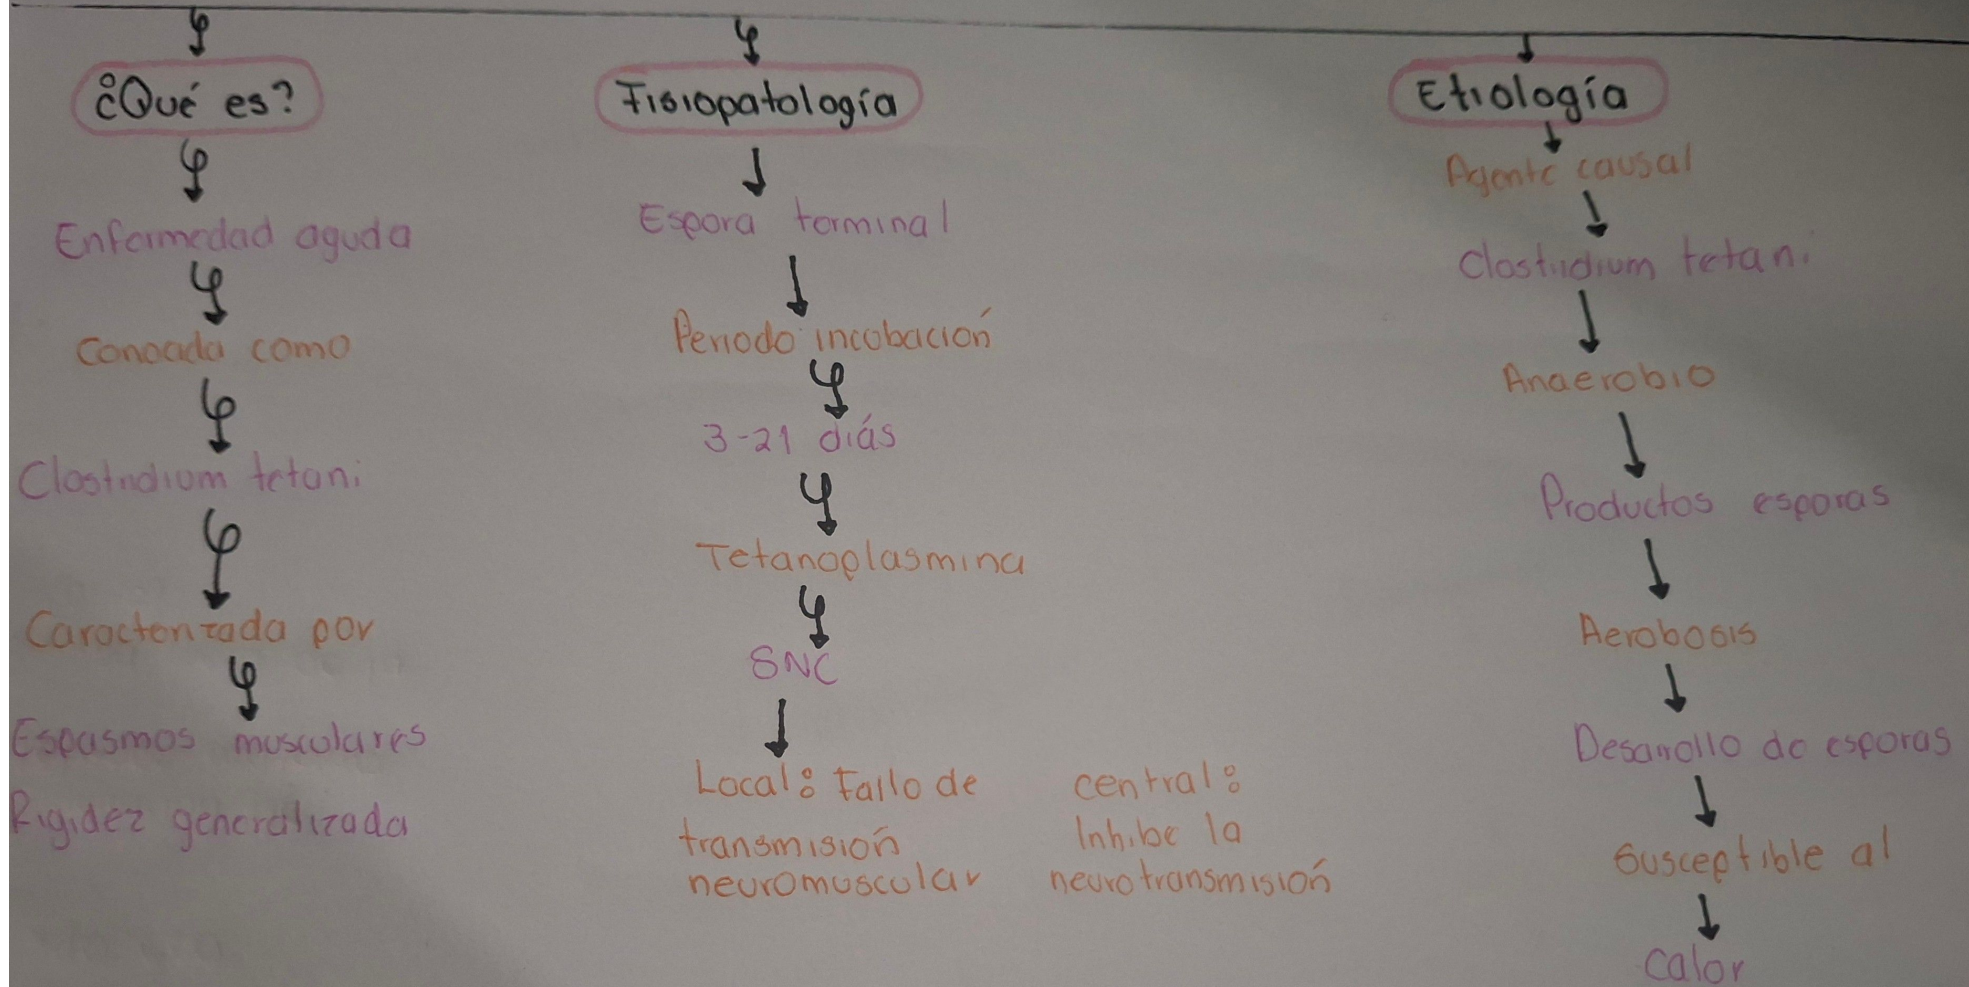 ¿Qué es?
Enfermedad aguda
Conocida como
Clostridium tetani
Caracterizada por
Espasmos musculares
Rigidez generalizada
Fisiopatología
Espora terminal
Periodo incobación
3-21 diás
Tetanoplasmina
SNC
Local: Fallo de
transmisión
neuromuscular
central:
Inhibe la
neurotransmisión
Etiología
Agente causal
Clostridium tetani
Anaerobio
Productos esporas
Aerobosis
Desarrollo de esporas
Susceptible al
Calor